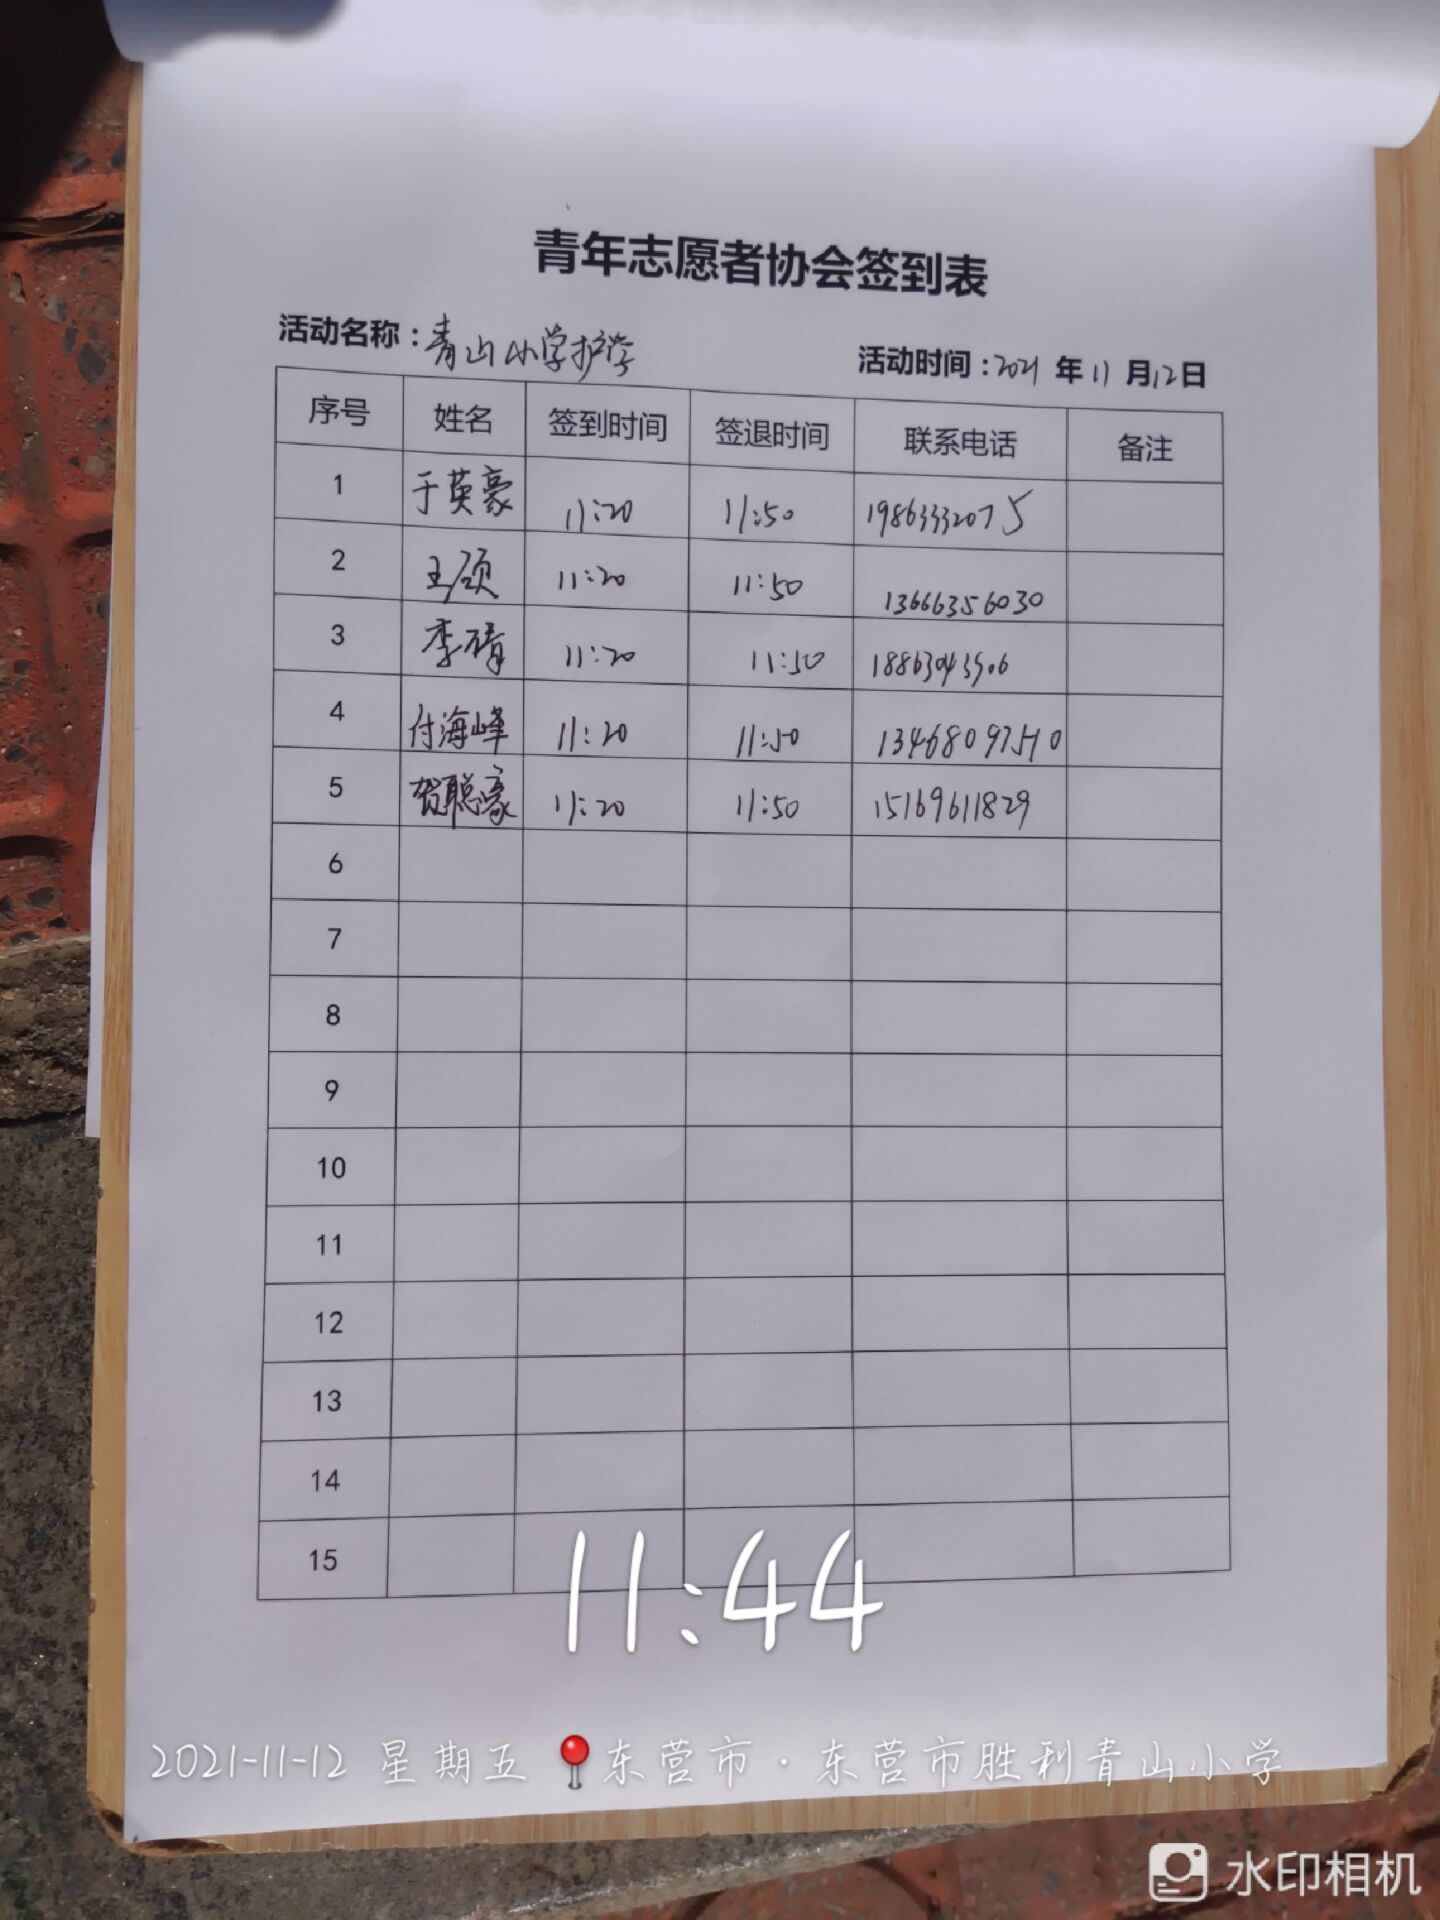 青年志愿者协会签到表
活动名称：青山小学护学 活动时间：2021 年 11 月 12 日
序号 姓名 签到时间 签退时间 联系电话 备注
1 于英豪 11:20 11:50 19863332075
2 王硕 11:20 11:50 13666356030
3 李倩 11:20 11:50 18863043906
4 付海峰 11:20 11:50
5 贺聪豪 11:20 11:50 15169611829
6
7
8
9
10
11
12
13
14
15
11:44
2021-11-12 星期五 东营市·东营市胜利青山小学
水印相机